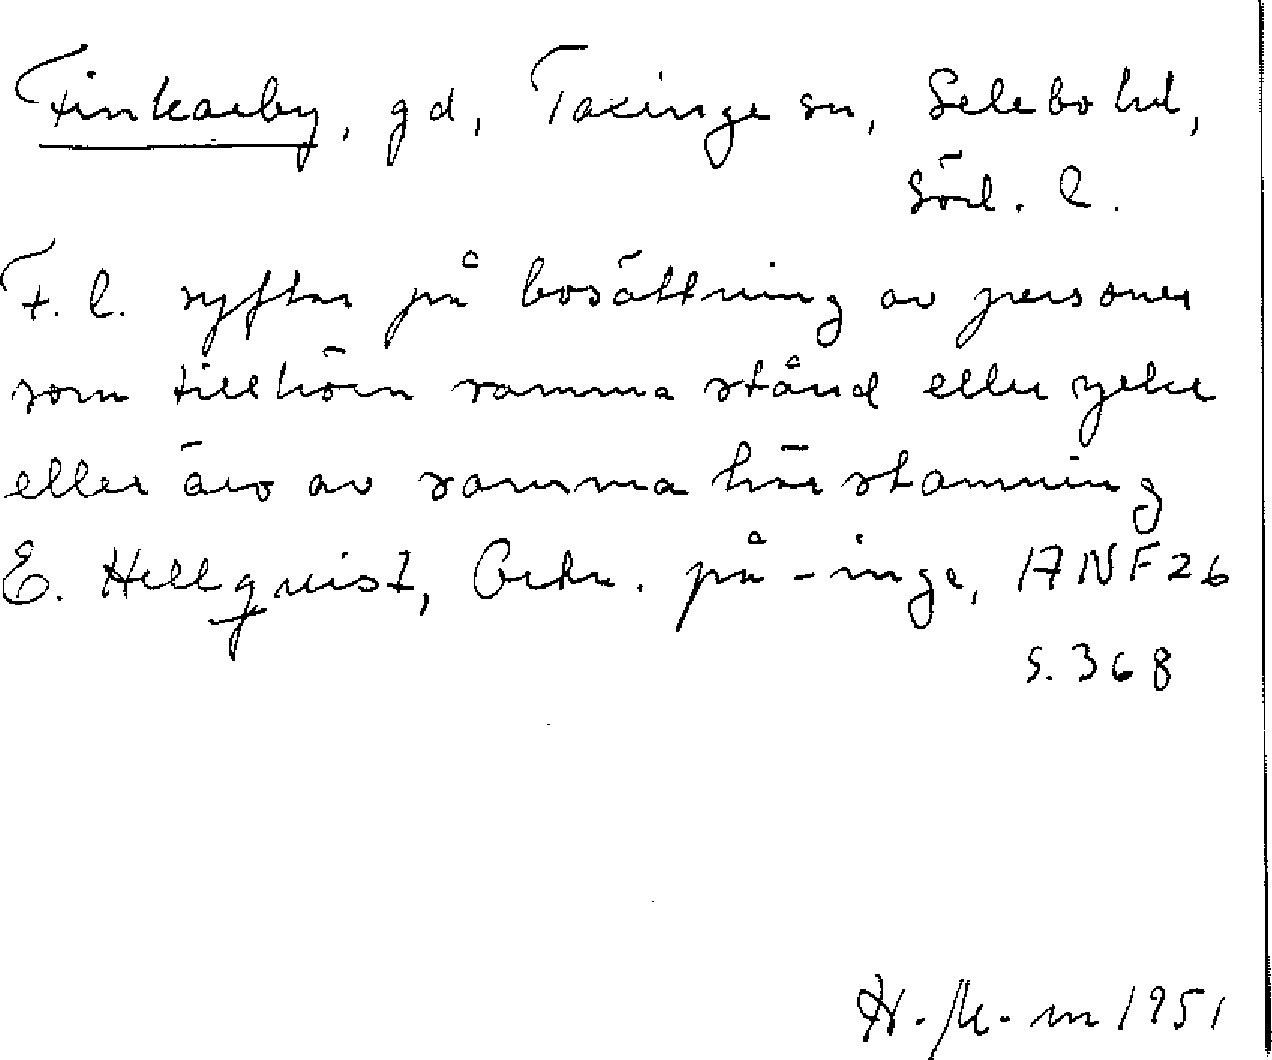 Finkarby, gd, Taxinge sn, Selebo hd,
Södl. l.
F. l. syftar på bosättning av personer
som tillhöra samma stånd eller yrke
eller äro av samma härstamning
E. Hellquist, Ortn. på -inge, ANF 26
s. 368
H. M-m 1951